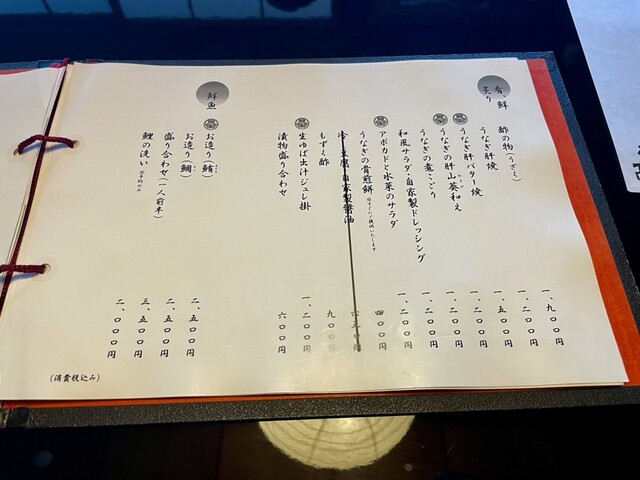 酢の物(うざく) 一、九〇〇円
うなぎ肝焼 一、二〇〇円
うなぎ肝バター焼 一、五〇〇円
うなぎの肝山葵和え 一、二〇〇円
うなぎの煮こごり 一、二〇〇円
和風サラダ・自家製ドレッシング 一、二〇〇円
アボカドと水菜のサラダ 一、二〇〇円
うなぎの骨煎餅 四〇〇円
豆腐・自家製醤油
もずく酢 九〇〇円
生ゆば出汁ジュレ掛 一、二〇〇円
漬物盛り合わせ 六〇〇円
鮮魚
お造り(鮪) 二、五〇〇円
お造り(鯛) 二、五〇〇円
盛り合わせ(一人前半) 三、五〇〇円
鯉の洗い 二、〇〇〇円
(消費税込み)